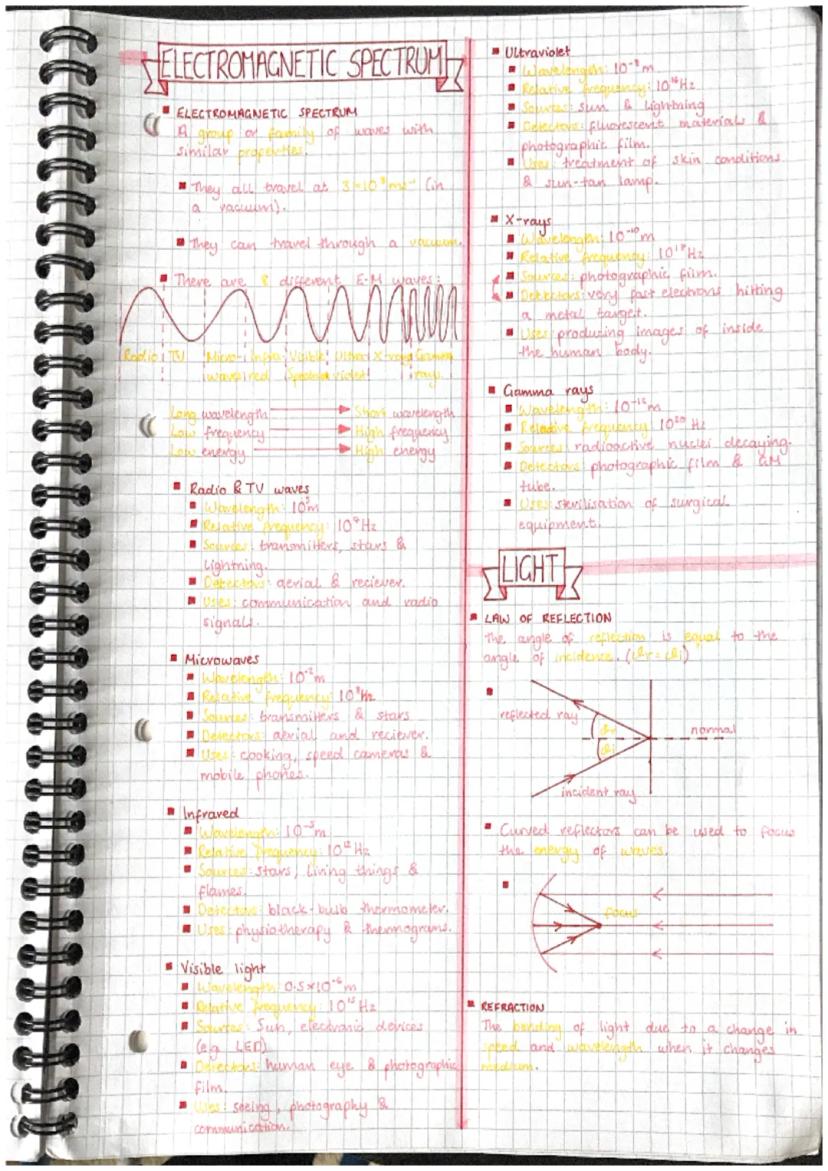 ELECTROMAGNETIC SPECTRUM
ELECTROMAGNETIC SPECTRUM
A group or family of waves with
similar properties.
They all travel at 3×10⁸ms⁻¹ (in
a vacuum).
They can travel through a vacuum.
There are 8 different E-M waves:
Radio TV Micro- Infra Visible Ultra X-rays Gamma
waves red Spectrum violet rays
Long wavelength Short wavelength
Low frequency High frequency
Low energy High energy
Radio & TV waves
Wavelength: m
Relative frequency: Hz
Sources: transmitters, stars &
lightning.
Detectors: aerial & reciever.
Uses: communication and radio
signals.
Microwaves
Wavelength: 10⁻²m
Relative frequency: Hz
Sources: transmitters & stars
Detectors: aerial and reciever.
Uses: cooking, speed cameras &
mobile phones.
Infrared
Wavelength: 10⁻⁵m
Relative frequency: 10¹²Hz
Sources: stars, living things &
flames.
Detectors: black-bulb thermometer.
Uses: physiotherapy & thermograms.
Visible light
Wavelength: 0.5×10⁻⁶m
Relative frequency: 10¹⁵Hz
Sources: Sun, electronic devices
(e.g. LED)
Detectors: human eye & photographic
film.
Uses: seeing, photography &
communication.
Ultraviolet
Wavelength: 10⁻⁸m
Relative frequency: 10¹⁶Hz
Sources: sun & lightning
Detectors: fluorescent materials &
photographic film.
Uses: treatment of skin conditions
& sun-tan lamp.
X-rays
Wavelength: 10⁻¹⁰m
Relative frequency: Hz
Sources: photographic film.
Detectors: very fast electrons hitting
a metal target.
Uses: producing images of inside
the human body.
Gamma rays
Wavelength: 10⁻¹²m
Relative frequency: 10²⁰Hz
Sources: radioactive nuclei decaying.
Detectors: photographic film & GM
tube.
Uses: sterilisation of surgical
equipment.
LIGHT
LAW OF REFLECTION
The angle of reflection is equal to the
angle of incidence. (θr = θi)
reflected ray
θr
normal
θi
incident ray
Curved reflectors can be used to focus
the energy of waves.
focus
REFRACTION
The bending of light due to a change in
speed and wavelength when it changes
medium.